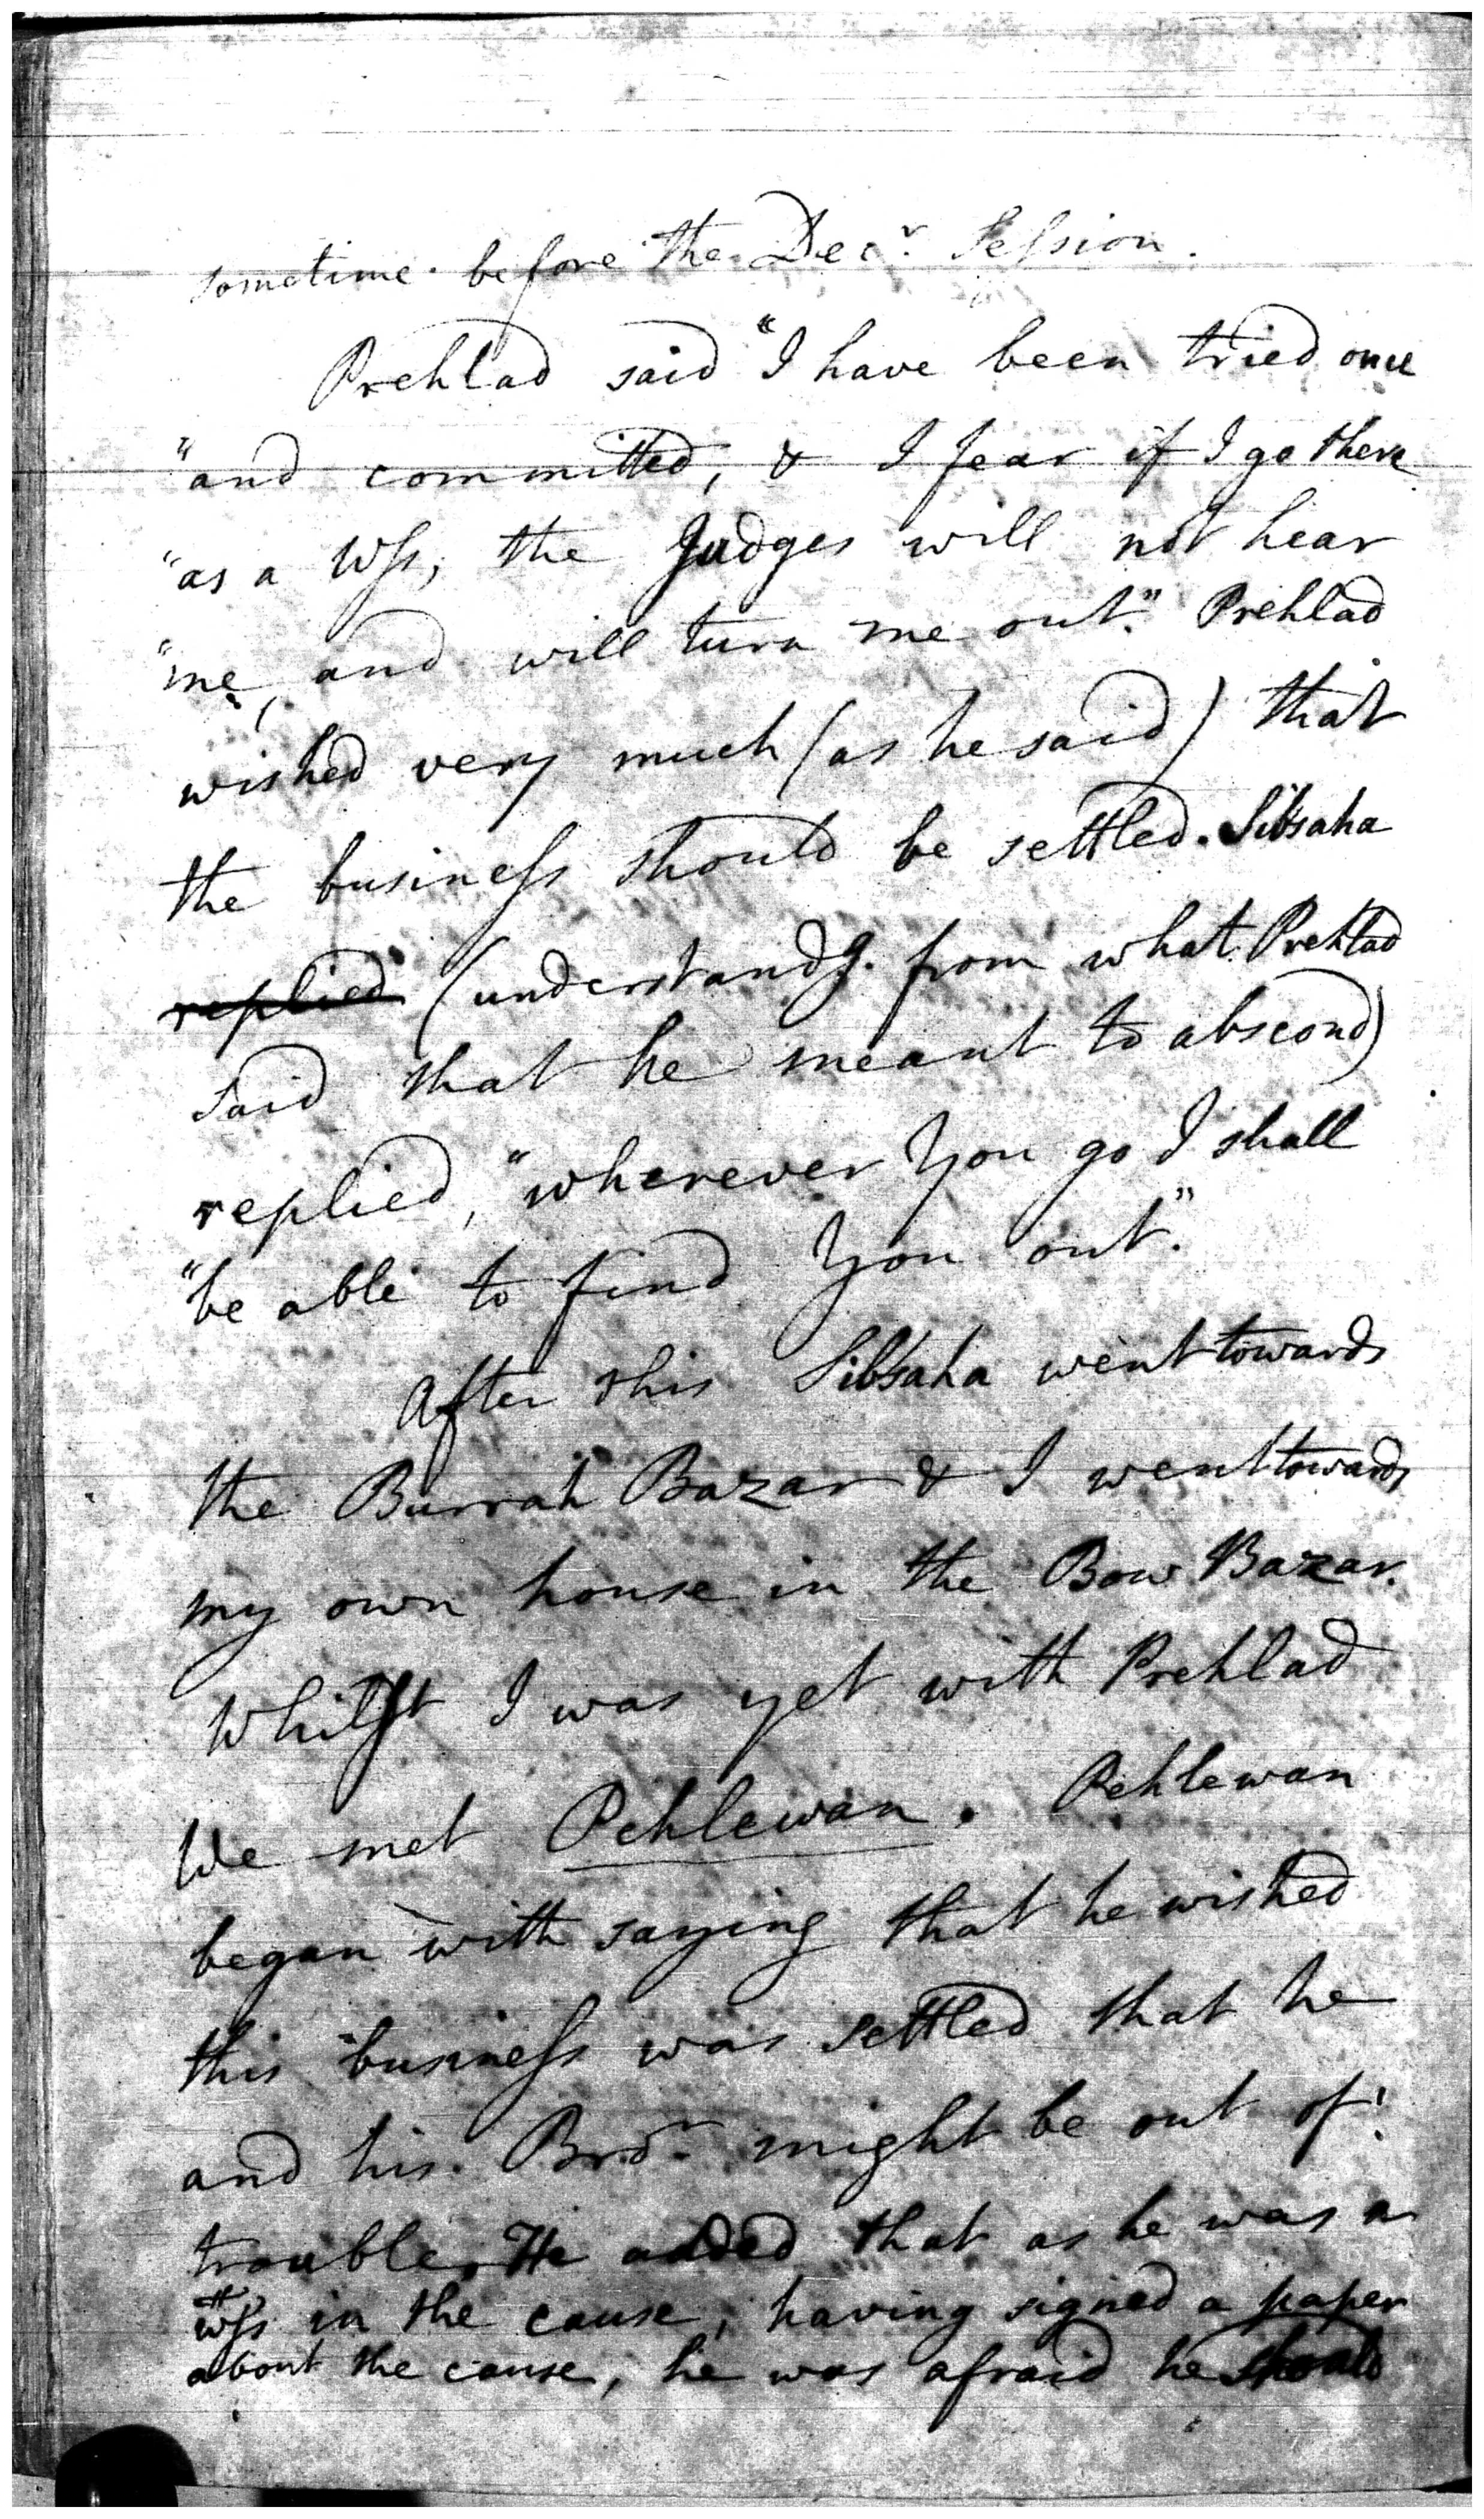 sometime before the Decr. Session.
Prehlad said "I have been tried once
"and committed, & I fear if I go there
"as a Wss, the Judges will not hear
"me, and will turn me out." Prehlad
wished very much (as he said) that
the business should be settled. Sibsaha
replied (understandg. from what Prehlad
said that he meant to abscond)
replied, "wherever You go I shall
"be able to find You out."
After this Sibsaha went towards
the Burrah Bazar & I went towards
my own house in the Bow Bazar.
Whilst I was yet with Prehlad
We met Pehlewan. Pehlewan
began with saying that he wished
this business was settled that he
and his Bror. might be out of
trouble. He added that as he was a
wss in the cause, having signed a paper
about the cause, he was afraid he should